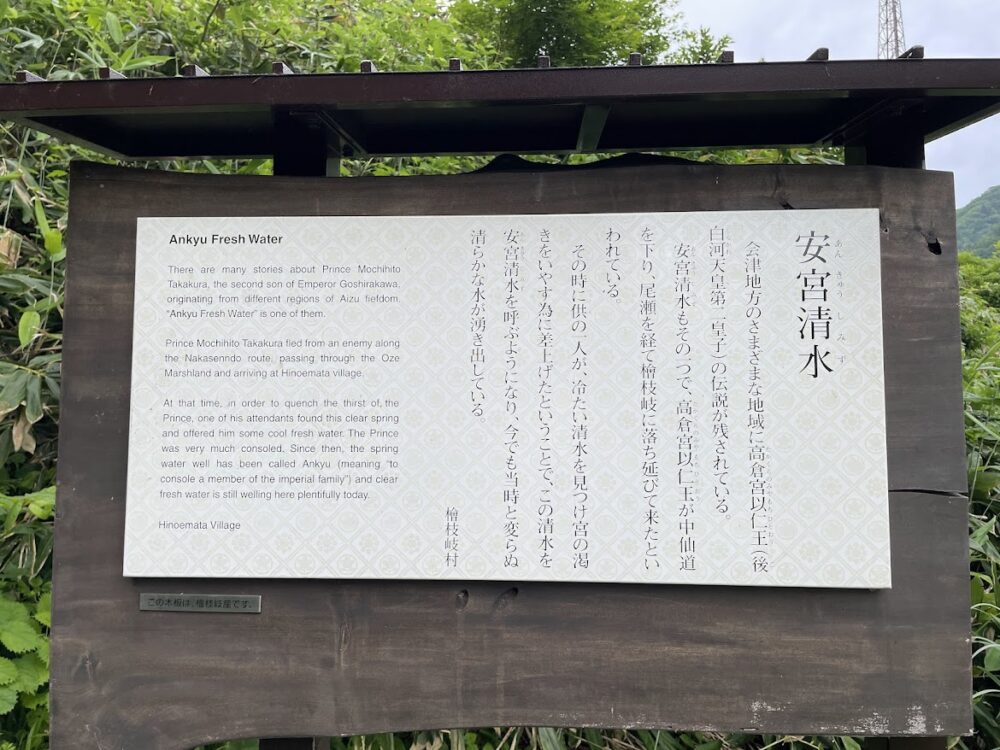 Ankyu Fresh Water
There are many stories about Prince Mochihito
Takakura, the second son of Emperor Goshirakawa,
originating from different regions of Aizu fiefdom.
"Ankyu Fresh Water" is one of them.
Prince Mochihito Takakura fled from an enemy along
the Nakasenndo route, passing through the Oze
Marshland and arriving at Hinoemata village.
At that time, in order to quench the thirst of, the
Prince, one of his attendants found this clear spring
and offered him some cool fresh water. The Prince
was very much consoled. Since then, the spring
water well has been called Ankyu (meaning "to
console a member of the imperial family") and clear
fresh water is still welling here plentifully today.
Hinoemata Village
安宮清水
あん きゅう し みず
会津地方のさまざまな地域に高倉宮以仁王(後
白河天皇第二皇子)の伝説が残されている。
安宮清水もその一つで、高倉宮以仁王が中仙道
を下り、尾瀬を経て檜枝岐に落ち延びて来たとい
われている。
その時に供の一人が、冷たい清水を見つけ宮の渇
きをいやす為に差上げたということで、この清水を
安宮清水を呼ぶようになり、今でも当時と変らぬ
清らかな水が湧き出している。
檜枝岐村
この木板は、檜枝岐産です。